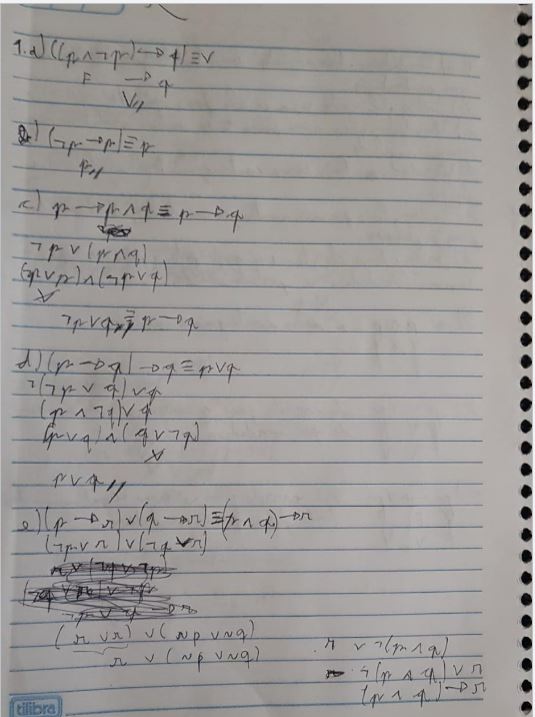 1.a) ((p ∧ ¬p) → q) ≡ V
F → q
V //
b) (¬p → p) ≡ p
p //
c) p → p ∧ q ≡ p → q
¬p ∨ (p ∧ q)
(¬p ∨ p) ∧ (¬p ∨ q)
V
¬p ∨ q ≡ p → q
d) (p → q) → q ≡ p ∨ q
¬(¬p ∨ q) ∨ q
(p ∧ ¬q) ∨ q
(p ∨ q) ∧ (q ∨ ¬q)
V
p ∨ q //
e) (p → r) ∨ (q → r) ≡ (p ∧ q) → r
(¬p ∨ r) ∨ (¬q ∨ r)
(r ∨ r) ∨ (~p ∨ ~q)
r ∨ (~p ∨ ~q)
r ∨ ¬(p ∧ q)
¬(p ∧ q) ∨ r
(p ∧ q) → r
tilibra